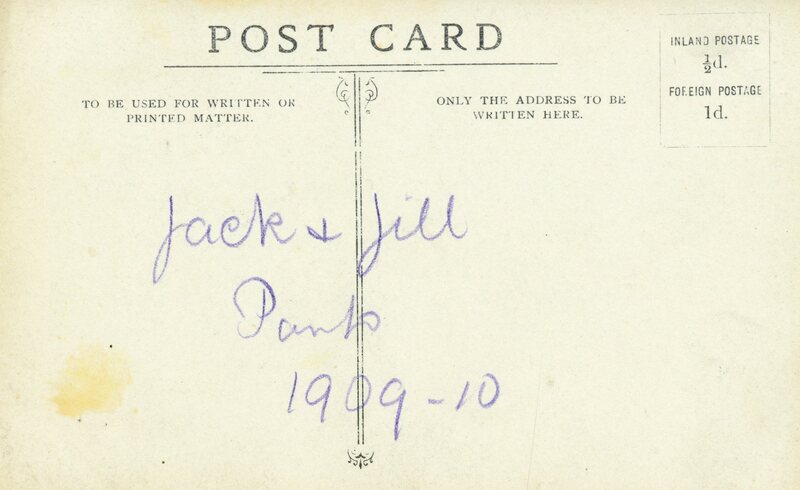 POST CARD
TO BE USED FOR WRITTEN OR
PRINTED MATTER.
ONLY THE ADDRESS TO BE
WRITTEN HERE.
INLAND POSTAGE
½d.
FOREIGN POSTAGE
1d.
Jack & Jill
Panto
1909-10